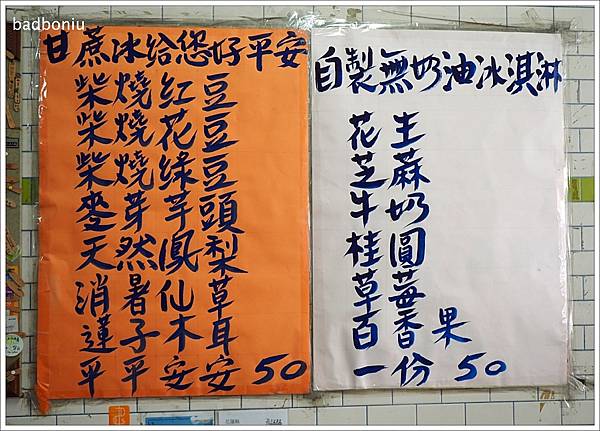 badboniu
甘蔗冰給您好平安
柴燒紅豆
柴燒花豆
柴燒綠豆
麥芽芋頭
天然鳳梨
消暑仙草
蓮子木耳
平平安安50
自製無奶油冰淇淋
花生
芝蔴
牛奶
桂圓
草莓
百香果
一份50